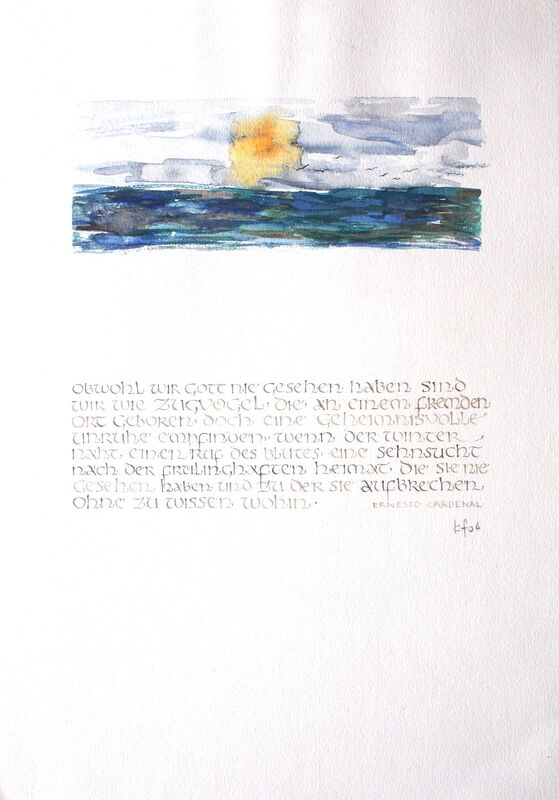 obwohl wir Gott nie Gesehen haben sind
wir wie ZUGVÖGEL, die, an einem fremden
ORT Geboren, doch eine Geheimnisvolle
unruhe empfinden, wenn der winter
naht, einen Ruf des Blutes, eine sehnsucht
nach der frülinghaften heimat, die sie nie
Gesehen haben und zu der sie aufbrechen,
ohne zu wissen wohin.
ERNESTO CARDENAL
kf04